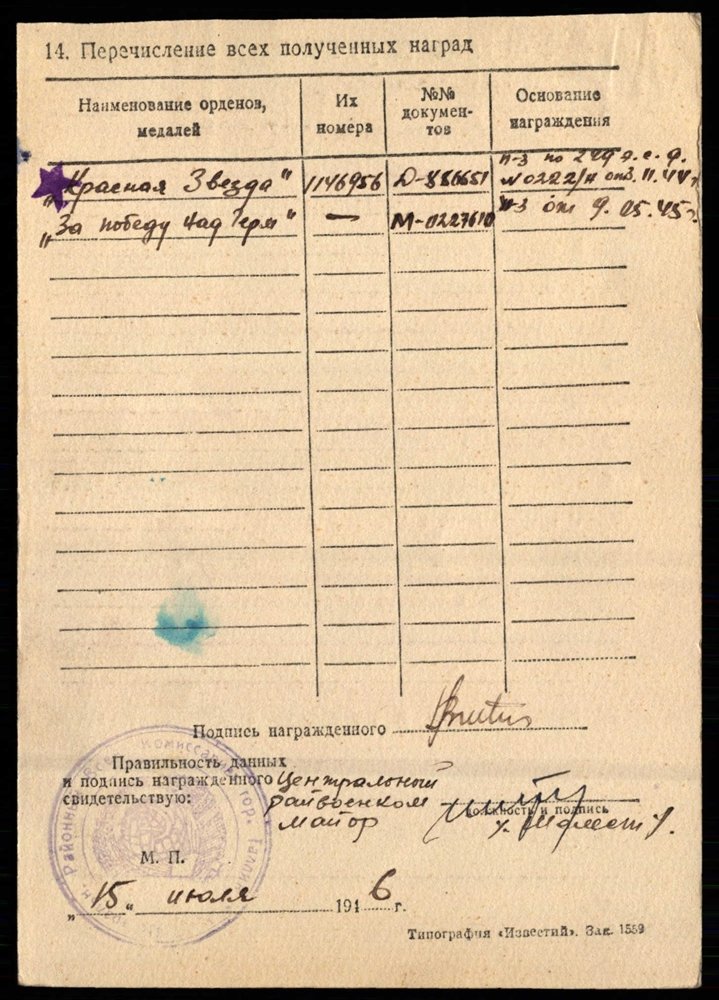 14. Перечисление всех полученных наград
Наименование орденов, медалей
Их номера
№№ докумен-тов
Основание награждения
п-з по 249 д.с.д.
"Красная Звезда" 1146956 Д-886651 №0222/н от 3.11.44 г.
"За победу над Герм" — М-0227610 п-з от 9.05.45 г.
Подпись награжденного
Правильность данных
и подпись награжденного Центральный
свидетельствую: райвоенком
майор
Должность и подпись
М. П.
"15" июля 1946 г.
Типография «Известий». Зак. 1559